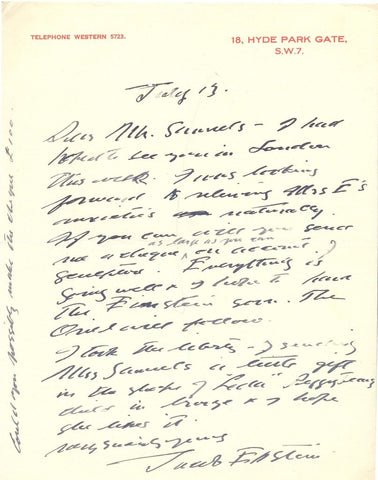 TELEPHONE WESTERN 5723.
18, HYDE PARK GATE,
S.W.7.
July 13.
Dear Mr. Samuels – I had
hoped to see you in London
this week. I was looking
forward to relieving Mrs E's
anxieties naturally.
If you can will you send
me a cheque as large as you can on account of
. Everything is
going well & I hope to have
the Einstein soon. The
will follow
I took the liberty of sending
Mrs Samuels a little gift
in the shape of "Leda"
in bronze & I hope
she likes it
very sincerely yours
Jacob Epstein
Could you possibly make the cheque £100.